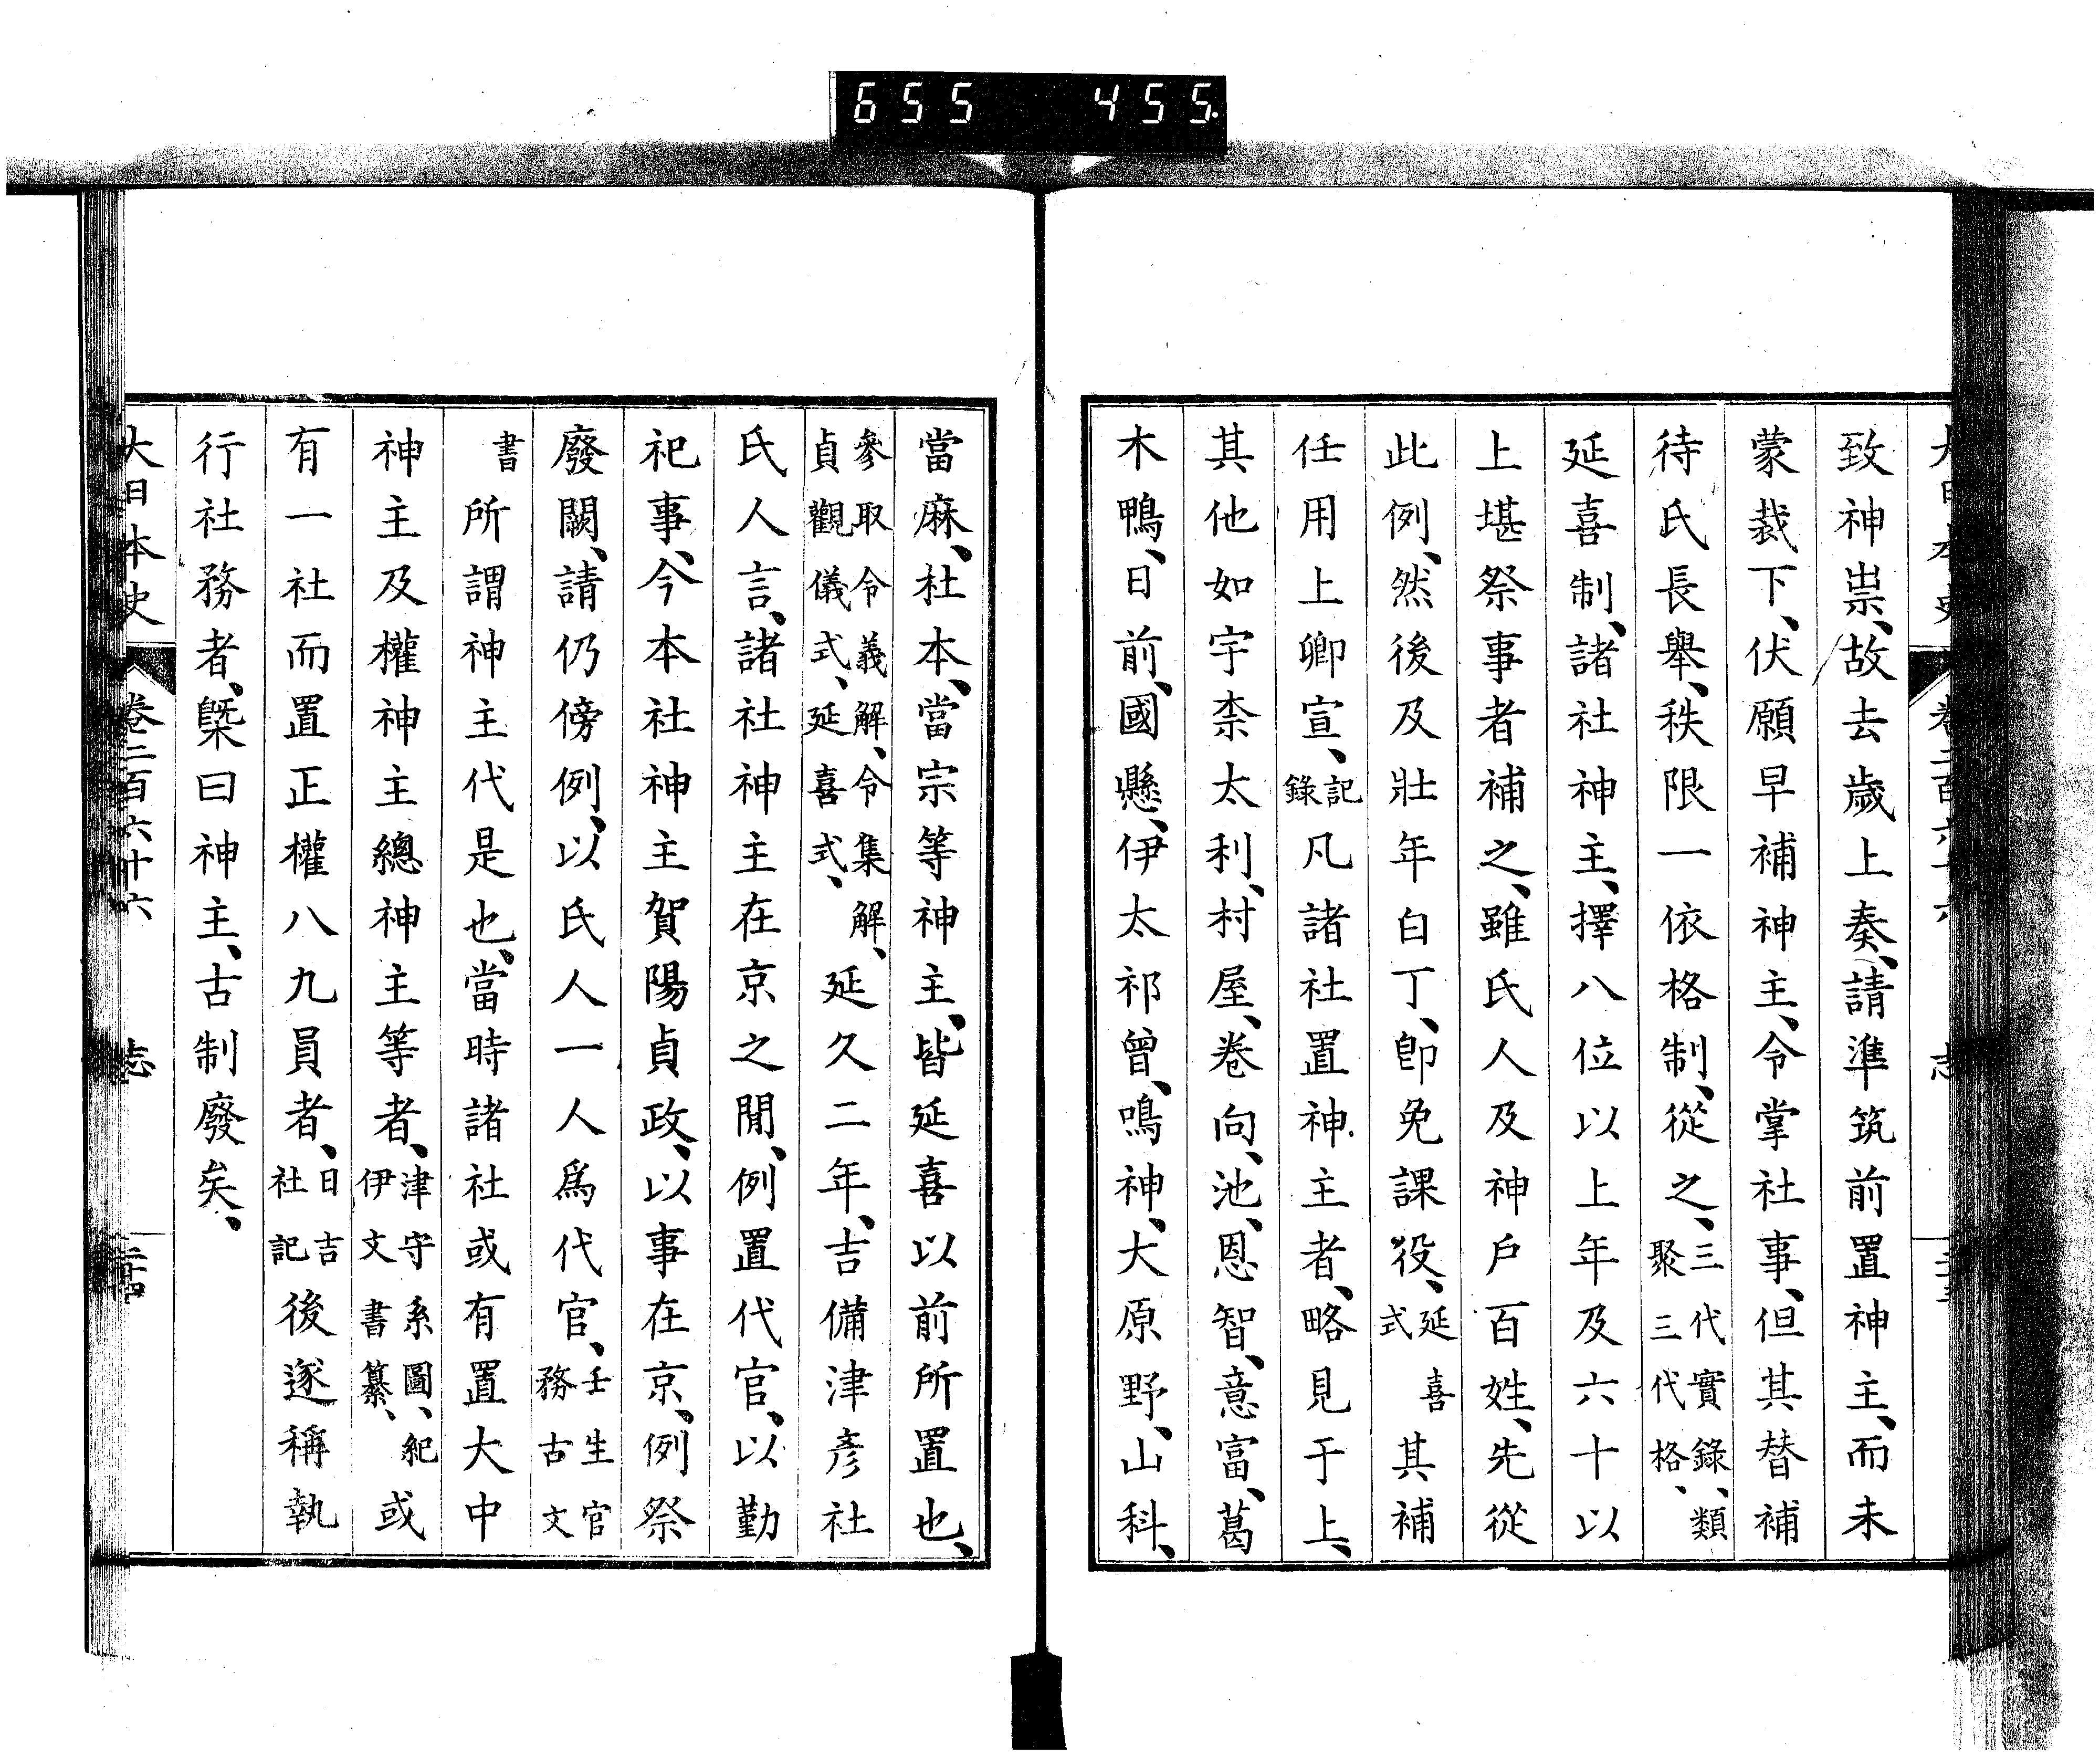 655 455.
致神祟、故去歲上奏、請準筑前置神主、而未
蒙裁下、伏願早補神主、令掌社事、但其替補
待氏長擧、秩限一依格制、從之、三代實錄、類聚三代格、
延喜制、諸社神主、擇八位以上年及六十以
上堪祭事者補之、雖氏人及神戶百姓、先從
此例、然後及壯年白丁、卽免課役、延喜式其補
任用上卿宣、記錄凡諸社置神主者、略見于上、
其他如宇柰太利、村屋、卷向、池、恩智、意富、葛
木鴨、日前、國懸、伊太祁曾、鳴神、大原野、山科、
當麻、杜本、當宗等神主、皆延喜以前所置也、
參取令義解、令集解、貞觀儀式、延喜式、延久二年、吉備津彥社
氏人言、諸社神主在京之閒、例置代官、以勤
祀事、今本社神主賀陽貞政、以事在京、例祭
廢闕、請仍傍例、以氏人一人爲代官、壬生官務古文
書所謂神主代是也、當時諸社或有置大中
神主及權神主總神主等者、津守系圖、紀伊文書纂、或
有一社而置正權八九員者、日吉社記後遂稱執
行社務者、槩曰神主、古制廢矣、
大日本史 卷二百六十六 志 二十四